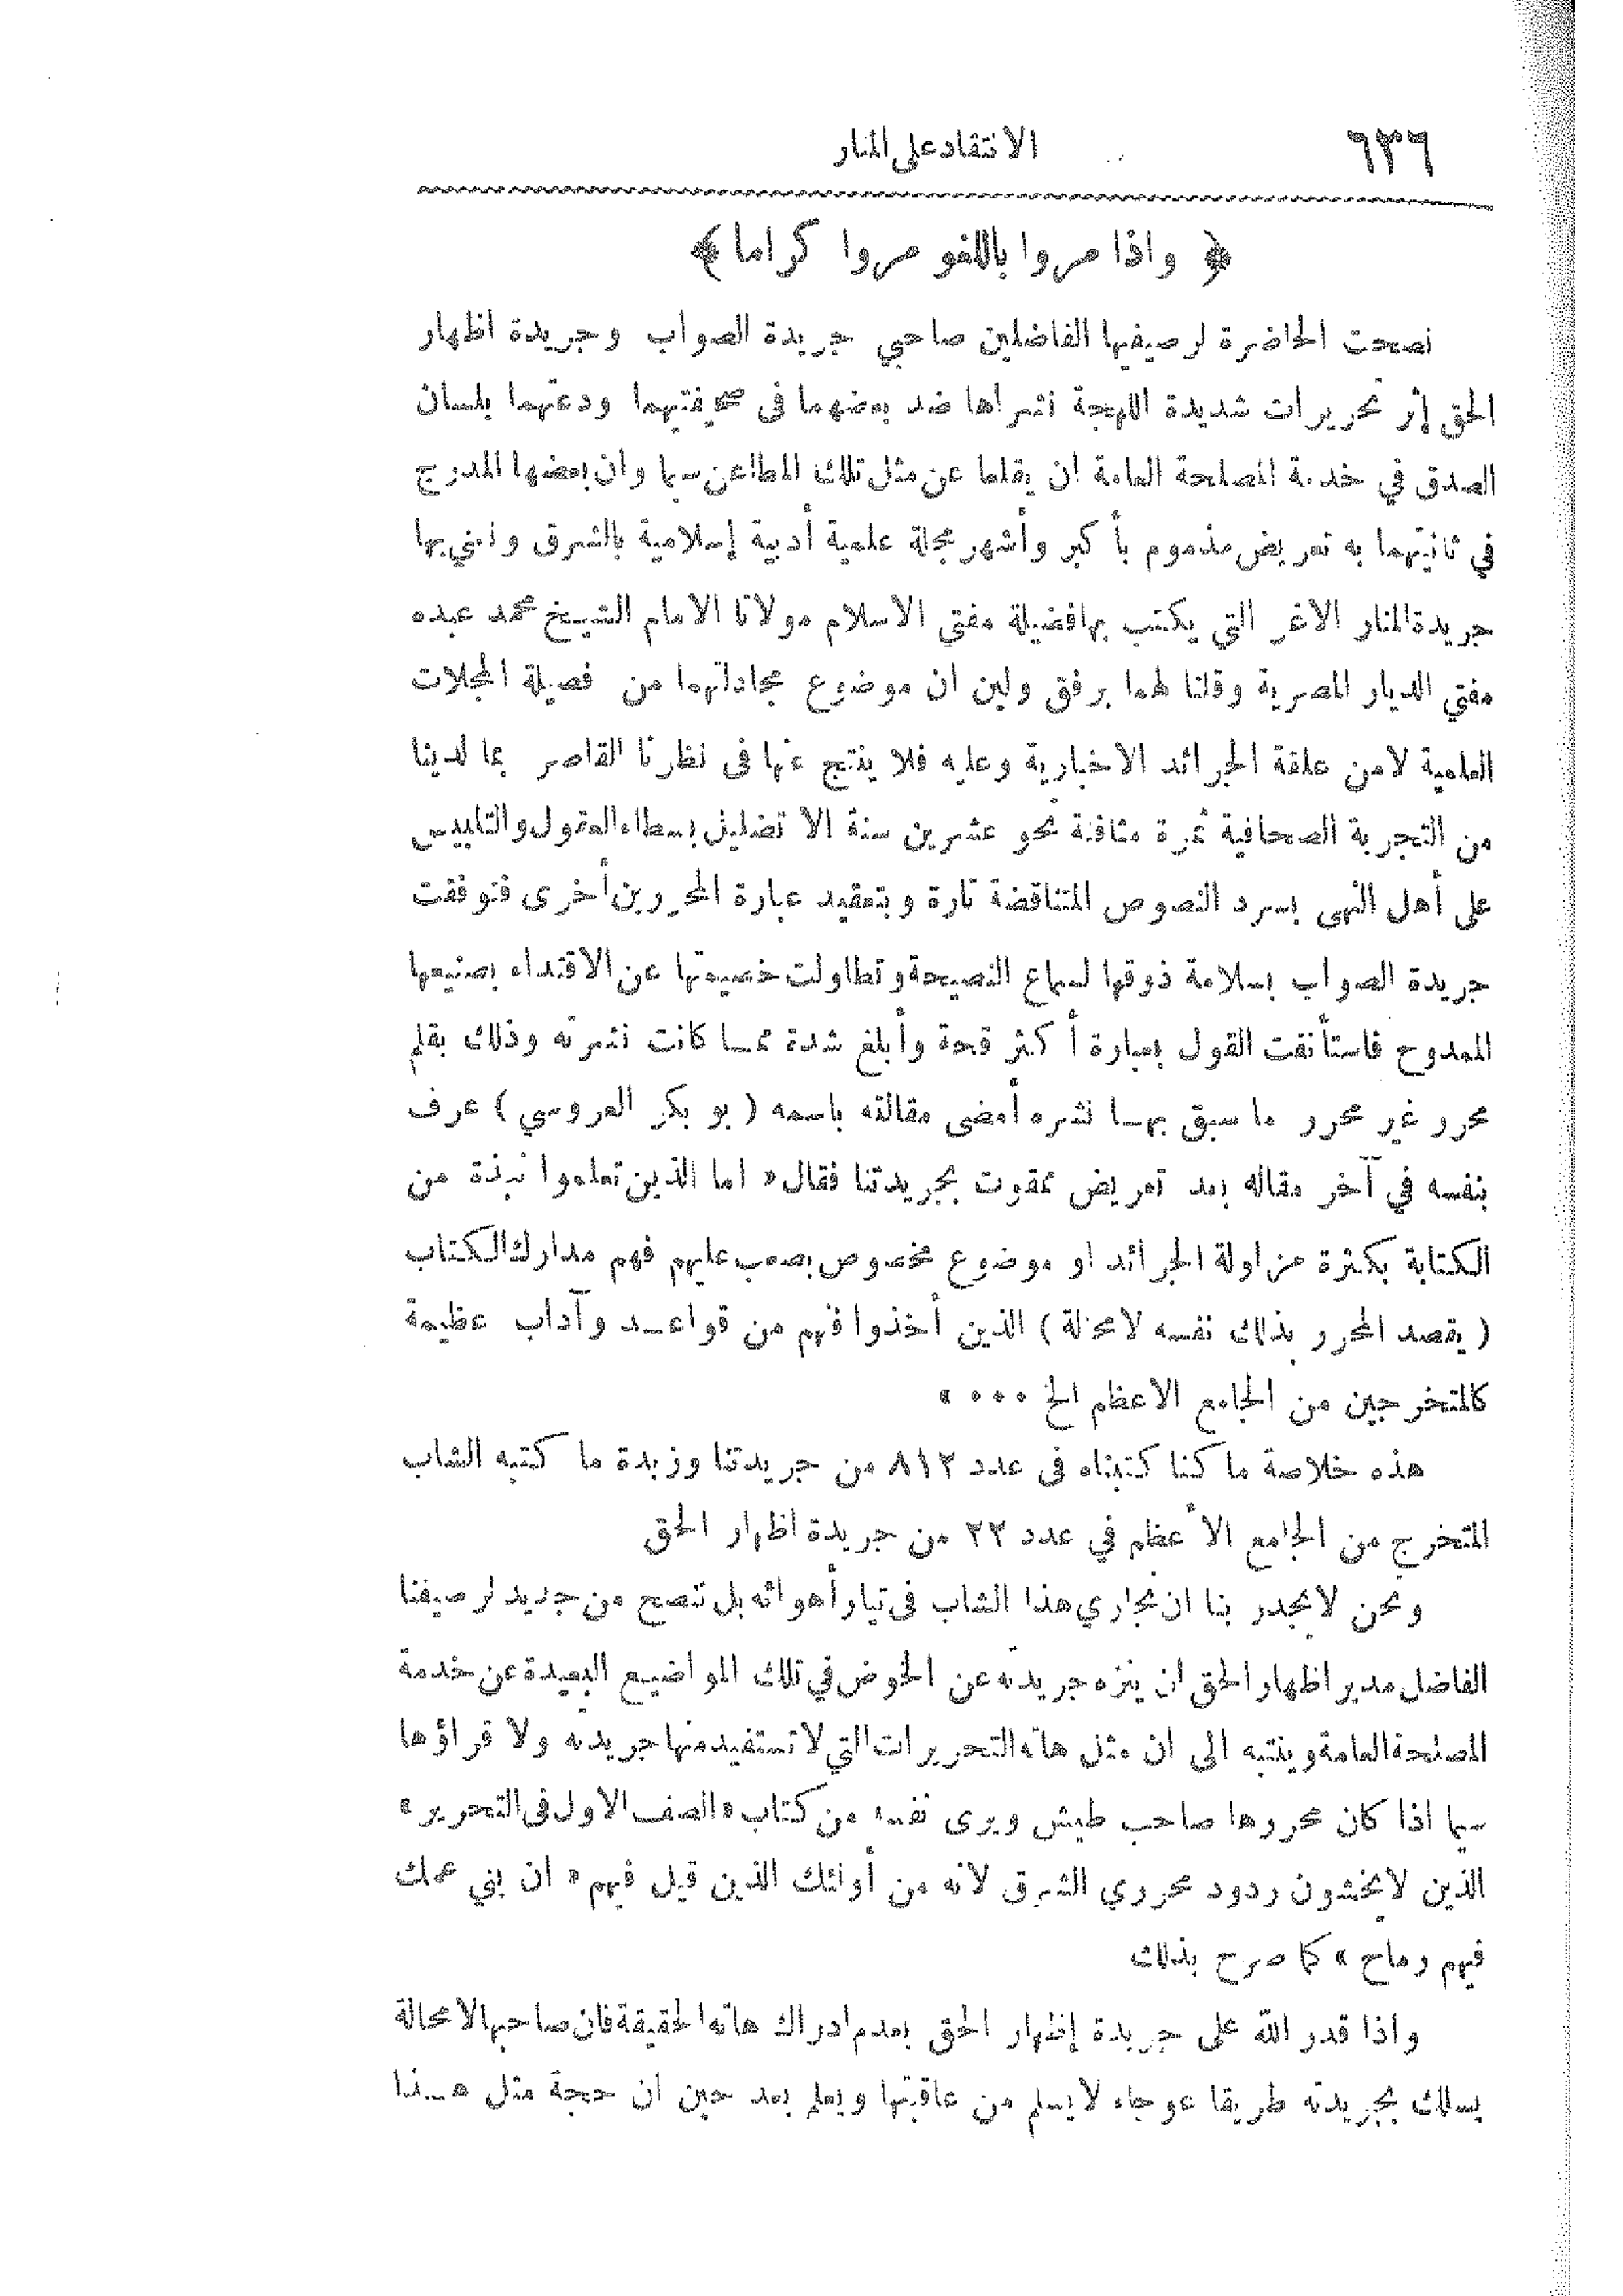 ٦٣٦ الانتقاد على المنار
﴿ واذا مروا باللغو مروا كراما ﴾
نصحت الحاضرة لرصيفيها الفاضلين صاحبي جريدة الصواب وجريدة اظهار
الحق إثر تحريرات شديدة اللهجة نشراها ضد بعضهما فى صحيفتيهما ودعتهما بلسان
الصدق في خدمة المصلحة العامة ان يقلعا عن مثل تلك المطاعن سيما وان بعضها المدرج
في ثانيتهما به تعريض مذموم بأكبر وأشهر مجلة علمية أدبية إسلامية بالشرق ونعني بها
جريدة المنار الاغر التي يكتب بها فضيلة مفتي الاسلام مولانا الامام الشيخ محمد عبده
مفتي الديار المصرية وقلنا لهما برفق ولين ان موضوع مجادلتهما من فصيلة المجلات
العلمية لا من علقة الجرائد الاخبارية وعليه فلا ينتج عنها فى نظرنا القاصر بما لدينا
من التجربة الصحافية ثمرة مثافنة نحو عشرين سنة الا تضليل بسطاء العقول والتلبيس
على أهل النهى بسرد النصوص المتناقضة تارة وبتعقيد عبارة المحررين أخرى فتوفقت
جريدة الصواب بسلامة ذوقها لسماع النصيحة وتطاولت خصيمتها عن الاقتداء بصنيعها
الممدوح فاستأنفت القول بعبارة أكثر قحة وأبلغ شدة مما كانت نشرته وذلك بقلم
محرر غير محرر ما سبق بهـا نشره أمضى مقالته باسمه ( بو بكر العروسي ) عرف
بنفسه في آخر مقاله بعد تعريض ممقوت بجريدتنا فقال « اما الذين تعلموا نبذة من
الكتابة بكثرة مزاولة الجرائد او موضوع مخصوص يصعب عليهم فهم مدارك الكتاب
( يقصد المحرر بذلك نفسه لا محالة ) الذين أخذوا فنهم من قواعـد وآداب عظيمة
كالمتخرجين من الجامع الاعظم الخ ٠٠٠ »
هذه خلاصة ما كنا كتبناه فى عدد ٨١٢ من جريدتنا وزبدة ما كتبه الشاب
المتخرج من الجامع الأعظم في عدد ٢٣ من جريدة اظهار الحق
ونحن لا يجدر بنا ان نجاري هذا الشاب فى تيار أهوائه بل ننصح من جديد لرصيفنا
الفاضل مدير اظهار الحق ان ينزه جريدته عن الخوض في تلك المواضيع البعيدة عن خدمة
المصلحة العامة وينتبه الى ان مثل هاته التحريرات التي لا تستفيد منها جريدته ولا قراؤها
سيما اذا كان محررها صاحب طيش ويرى نفسه من كتاب « الصف الاول فى التحرير »
الذين لا يخشون ردود محرري الشرق لانه من أولئك الذين قيل فيهم « ان بني عمك
فيهم رماح » كما صرح بذلك
واذا قدر الله على جريدة إظهار الحق بعدم ادراك هاته الحقيقة فان صاحبها لا محالة
يسلك بجريدته طريقا عوجاء لا يسلم من عاقبتها ويعلم بعد حين ان حجة مثل هـذا